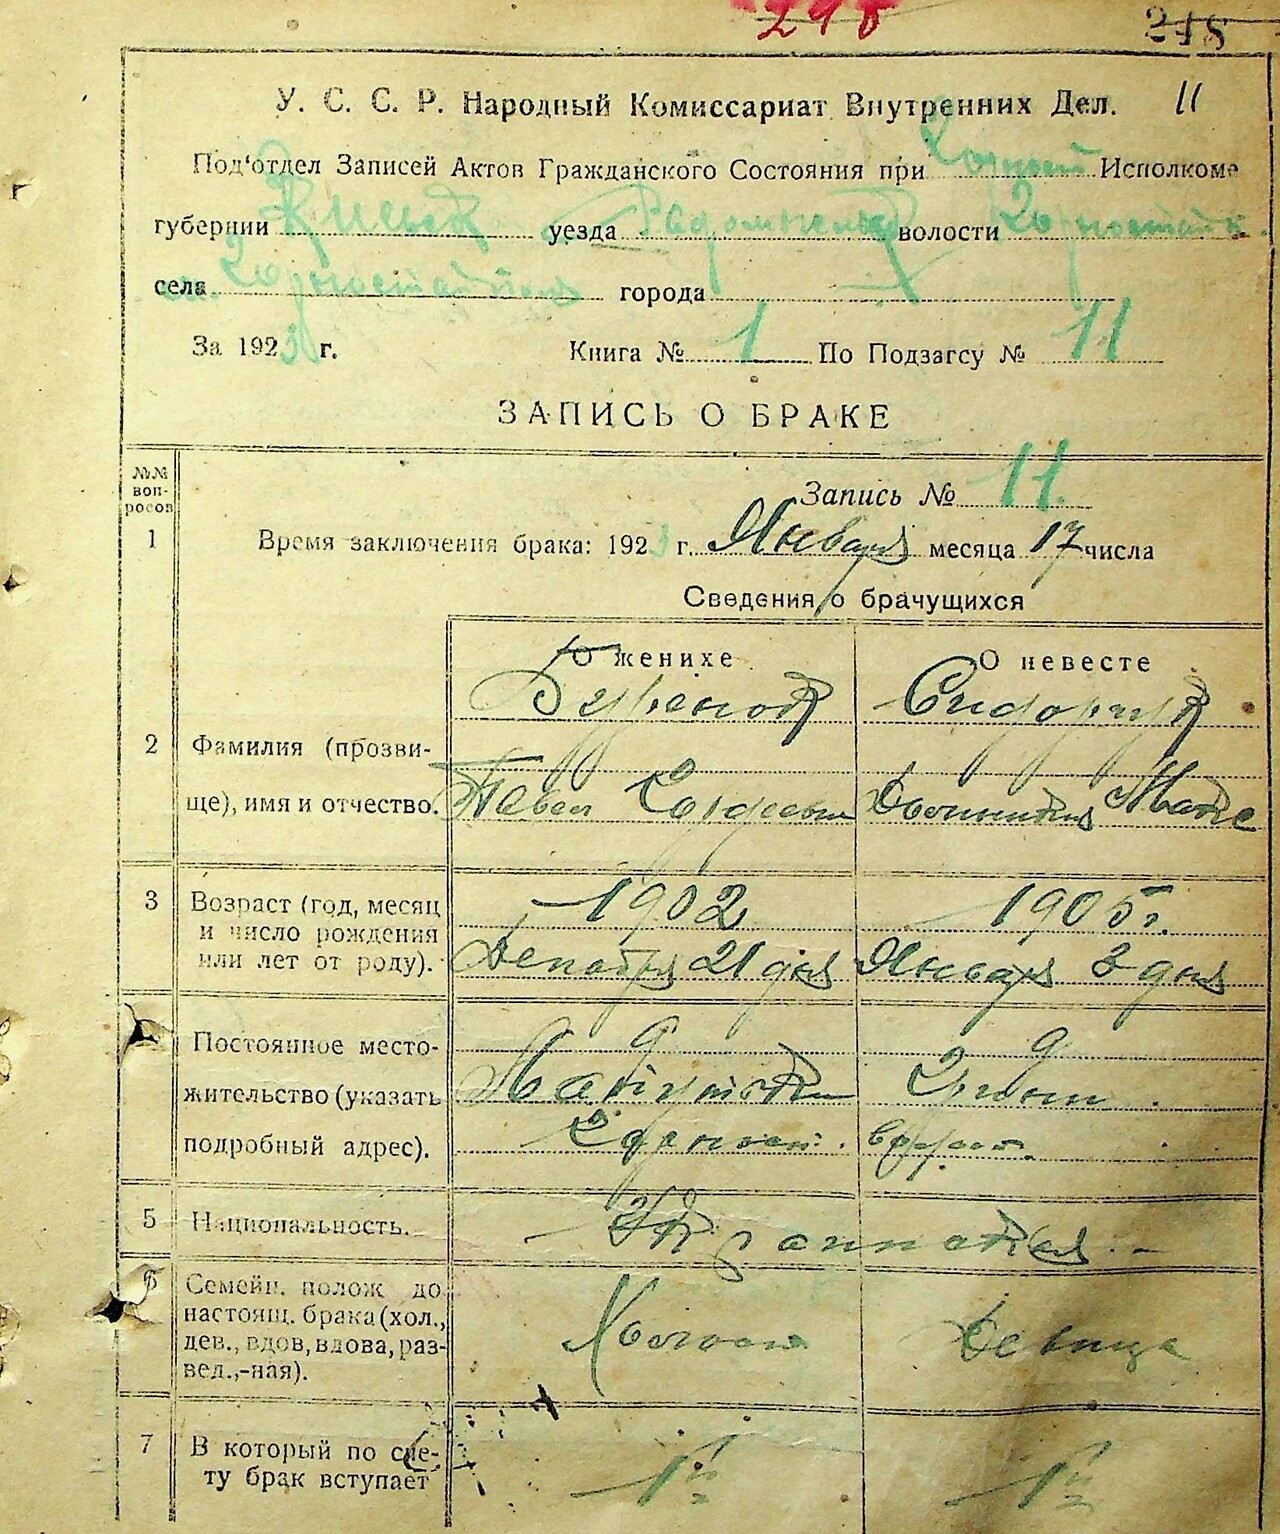 298
218
У. С. С. Р. Народный Комиссариат Внутренних Дел. 11
Под'отдел Записей Актов Гражданского Состояния при Исполкоме
губернии Киевск уезда Радомысльск волости Горностайп.
села Горностайполь города
За 1923 г. Книга № 1 По Подзагсу № 11
ЗАПИСЬ О БРАКЕ
№№ вопросов
Запись № 11.
1 Время заключения брака: 1923 г. Января месяца 17 числа
Сведения о брачущихся
О женихе О невесте
Сидорчук
2 Фамилия (прозви-
ще), имя и отчество. Павел Гордеевич
3 Возраст (год, месяц
и число рождения
или лет от роду).
1902 1905 г.
Декабря 21 дня Января 3 дня
Постоянное место-
жительство (указать
подробный адрес).
Горност. волост.
5 Национальность. Украинская
6 Семейн. полож до
настоящ. брака (хол.,
дев., вдов, вдова, раз-
вед.,-ная).
Холост Девица
7 В который по сче-
ту брак вступает
1й 1й